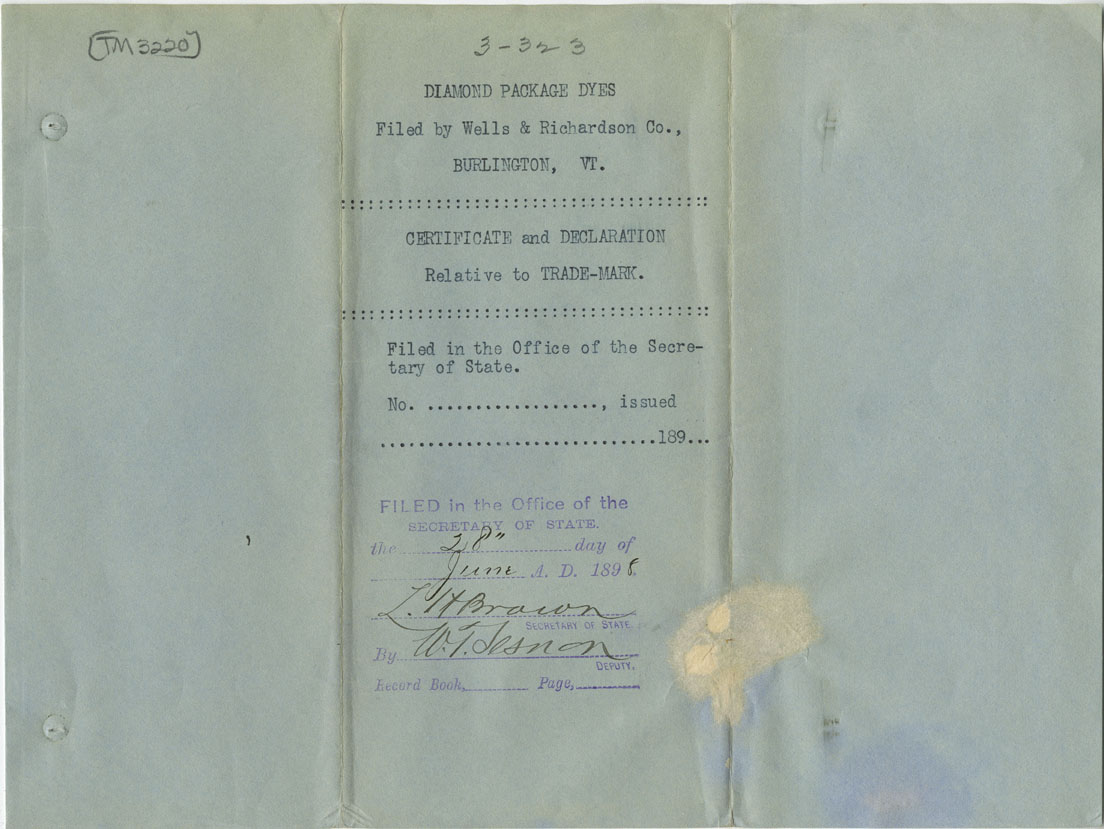 [TM 3220]
3-323
DIAMOND PACKAGE DYES
Filed by Wells & Richardson Co.,
BURLINGTON, VT.
::::::::::::::::::::::::::::::::::::::
CERTIFICATE and DECLARATION
Relative to TRADE-MARK.
::::::::::::::::::::::::::::::::::::::
Filed in the Office of the Secre-
tary of State.
No. .................., issued
.............................189...
FILED in the Office of the
SECRETARY OF STATE.
the 28" day of
June A. D. 1898.
L. H Brown
SECRETARY OF STATE.
By W. T. Sesnon
DEPUTY.
Record Book, Page,